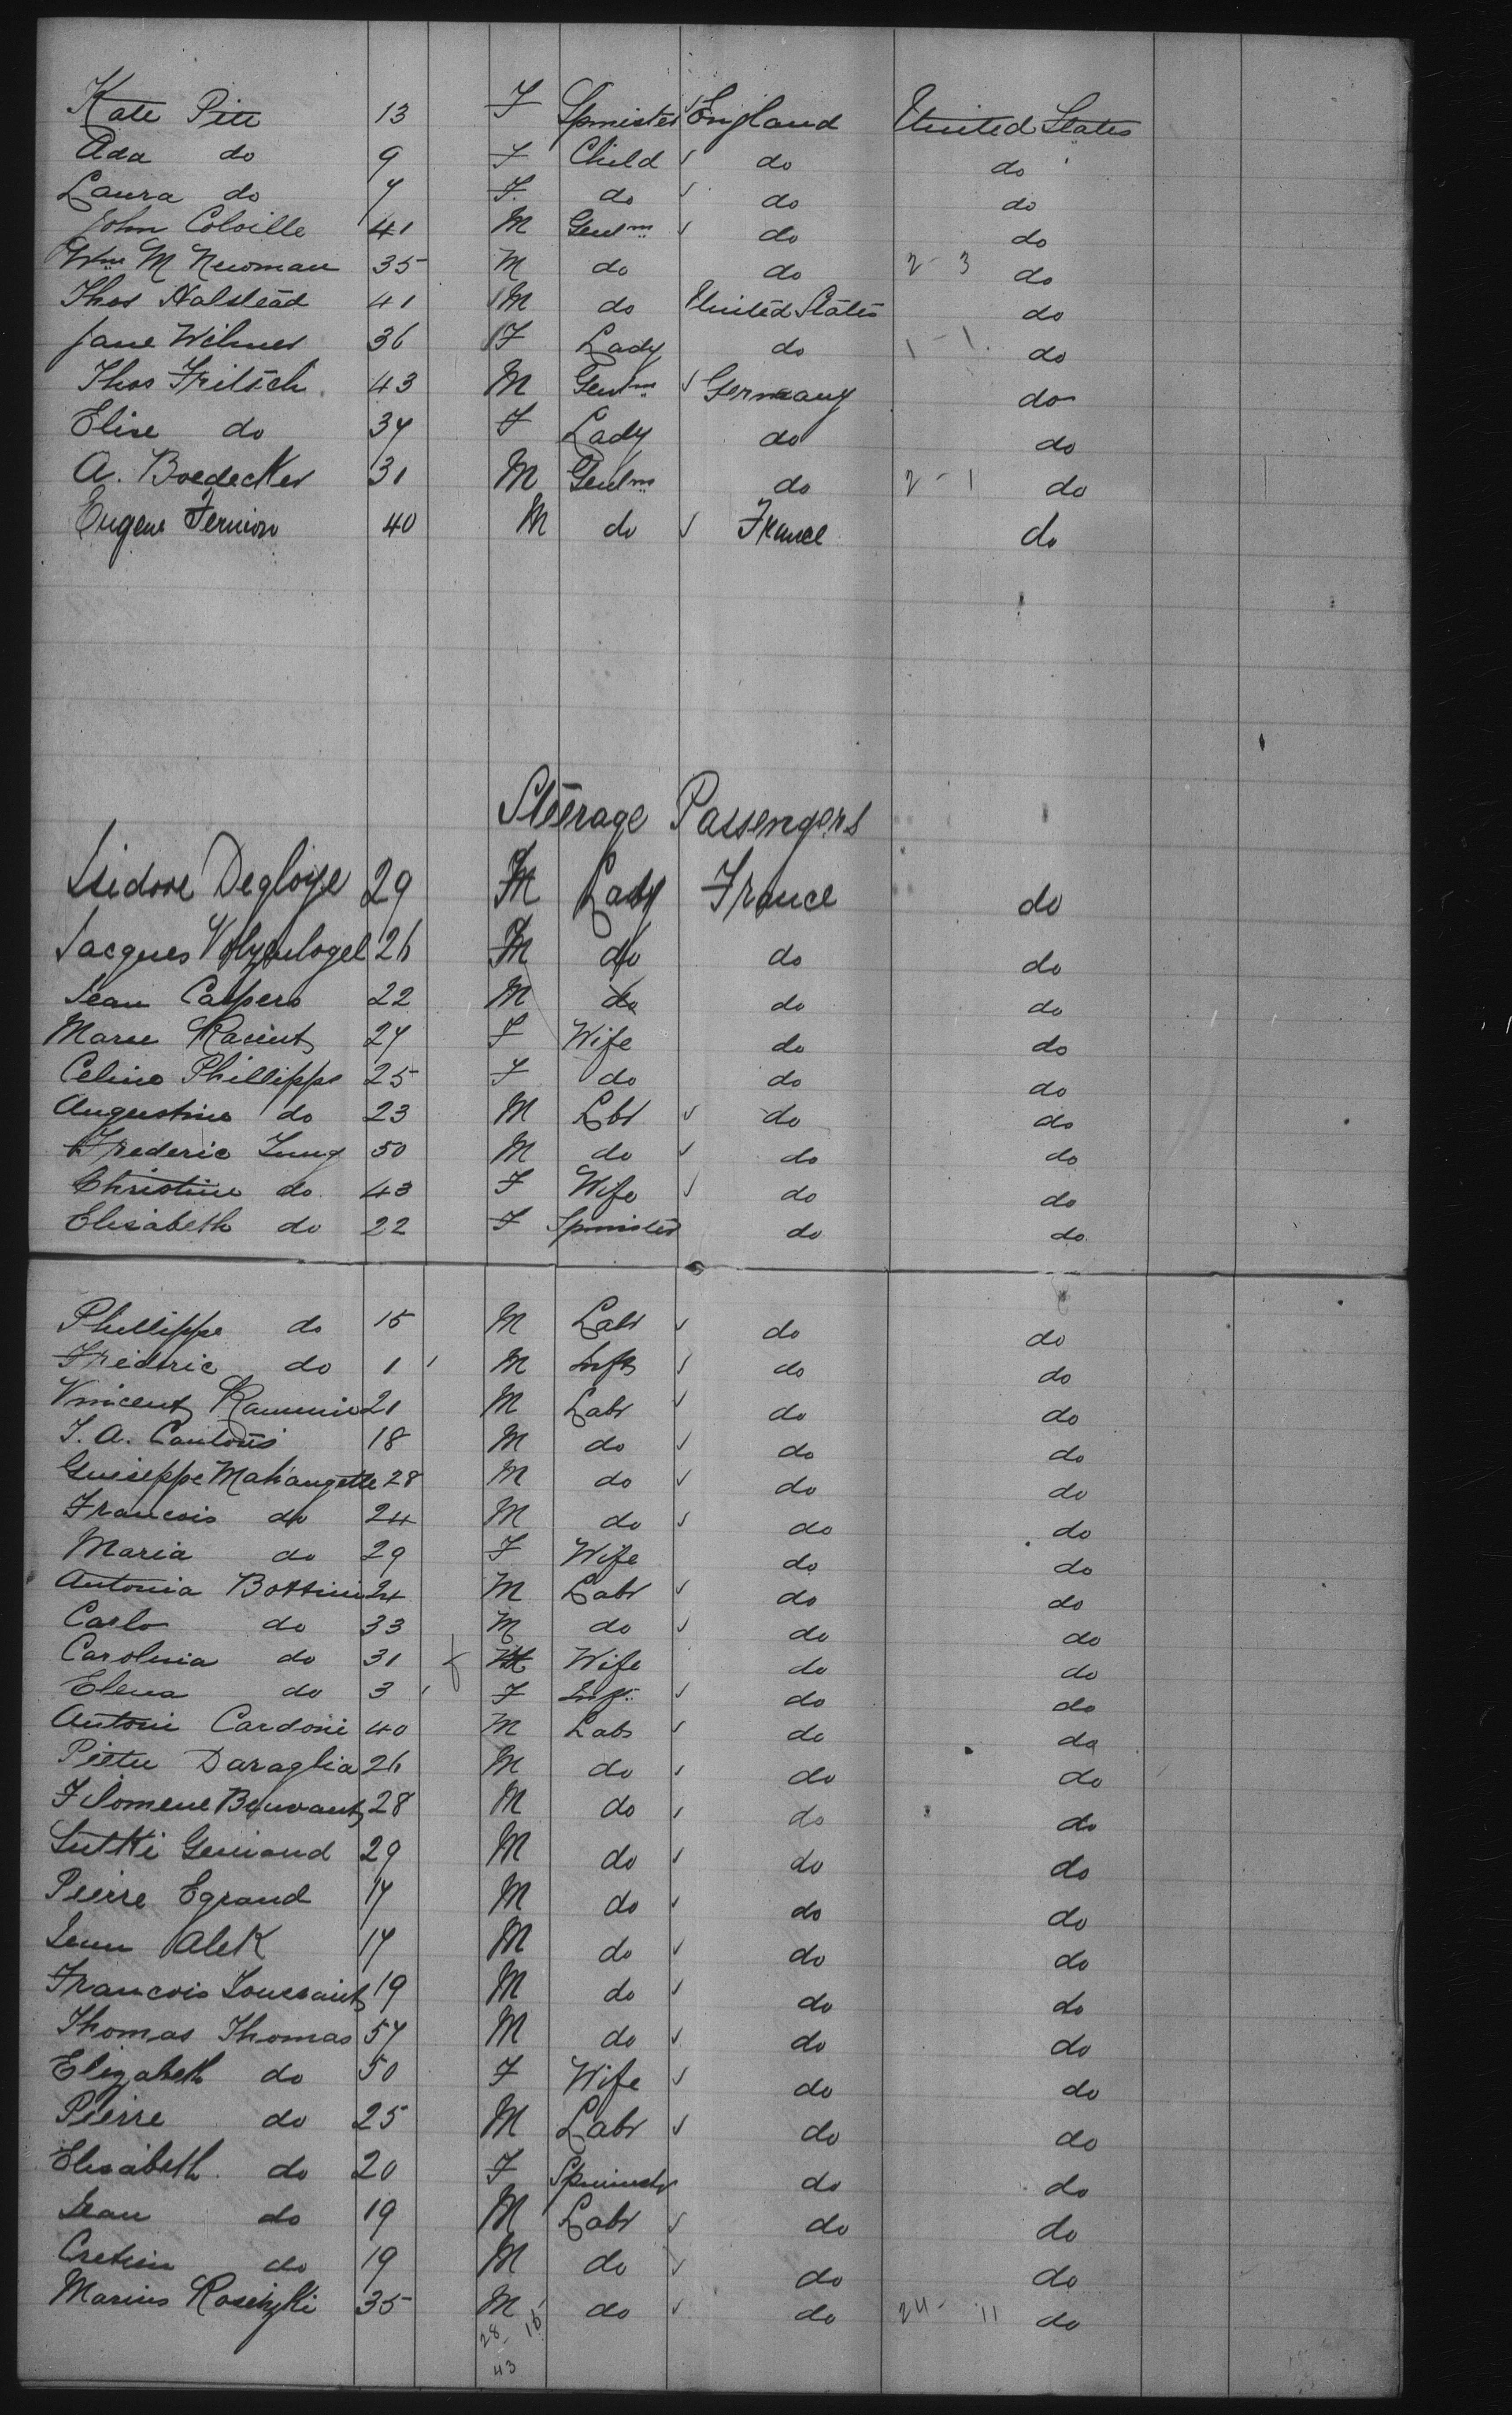 Kate Pitt 13 F Spinister England United States
Ada do 9 F Child do do
Laura do 7 F. do do do
John Colville 41 M Gentm do do
Wm M Newman 35 M do do 2-3 do
Thos Halstead 41 M do United States do
Jane Wilmer 36 F Lady do 1-1 do
Thos Fritsch 43 M Gentm Germany do
Elise do 34 F Lady do do
A. Boedecker 31 M Gentm do 2-1 do
Eugene Fernion 40 M do France do
Steerage Passengers
Isidore Degloye 29 M Lady France do
Jacques 26 M do do do
Jean Caspers 22 M do do do
Marie Racint 27 F Wife do do
Celine Phillippe 25 F do do do
Augustine do 23 M Lbr do do
Frederic Jung 50 M do do do
Christine do 43 F Wife do do
Elisabeth do 22 F Spinister do do
Phillippe do 15 M Labr do do
Frederic do 1 M Inft do do
Vincent 21 M Labr do do
J. A. 18 M do do do
Guiseppe 28 M do do do
Francois do 24 M do do do
Maria do 29 F Wife do do
Antonia Bottini 24 M Labr do do
Carlo do 33 M do do do
Carolina do 31 f Wife do do
Elena do 3 F Inf. do do
Antoni Cardoni 40 M Labr do do
Pietu Daraglia 26 M do do do
Filomene 28 M do do do
Lutki 29 M do do do
Pierre Egrand 17 M do do do
Jean Alek 17 M do do do
Francois Toussaint 19 M do do do
Thomas Thomas 57 M do do do
Elizabeth do 50 F Wife do do
Pierre do 25 M Labr do do
Elisabeth. do 20 F Spinnister do do
Jean do 19 M Labr do do
Cretien do 19 M do do do
Marius 35 M do do 24- 11 do
28- 15
43